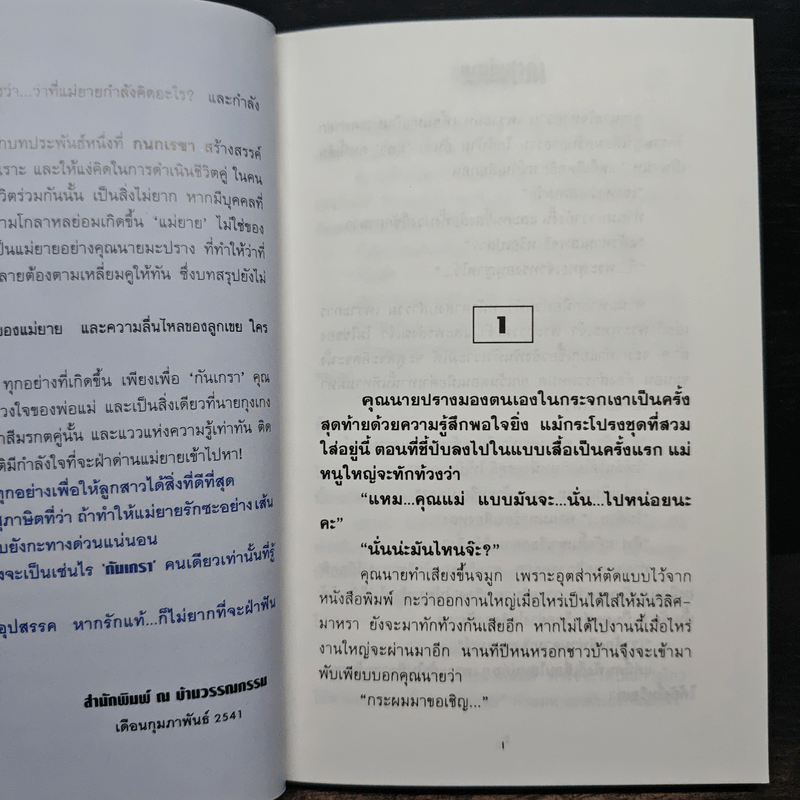 รว่า...ว่าที่แม่ยายกำลังคิดอะไร? และกำลัง
กบทประพันธ์หนึ่งที่ กนกเรขา สร้างสรรค์
เราะ และให้แง่คิดในการดำเนินชีวิตคู่ ในคน
วิตร่วมกันนั้น เป็นสิ่งไม่ยาก หากมีบุคคลที่
ามโกลาหลย่อมเกิดขึ้น 'แม่ยาย' ไม่ใช่ของ
ป็นแม่ยายอย่างคุณนายมะปราง ที่ทำให้ว่าที่
ลายต้องตามเหลี่ยมคูให้ทัน ซึ่งบทสรุปยังไม่
ของแม่ยาย และความลื่นไหลของลูกเขย ใคร
ทุกอย่างที่เกิดขึ้น เพียงเพื่อ 'กันเกรา' คุณ
วงใจของพ่อแม่ และเป็นสิ่งเดียวที่นายกุงเกง
าสีมรกตคู่นั้น และแววแห่งความรู้เท่าทัน ติด
ดิมีกำลังใจที่จะฝ่าด่านแม่ยายเข้าไปหา!
ทุกอย่างเพื่อให้ลูกสาวได้สิ่งที่ดีที่สุด
สุภาษิตที่ว่า ถ้าทำให้แม่ยายรักซะอย่าง เส้น
บยังกะทางด่วนแน่นอน
งจะเป็นเช่นไร 'กันเกรา' คนเดียวเท่านั้นที่รู้
อุปสรรค หากรักแท้...ก็ไม่ยากที่จะฝ่าฟัน
สำนักพิมพ์ ณ บ้านวรรณกรรม
เดือนกุมภาพันธ์ 2541
1
คุณนายปรางมองตนเองในกระจกเงาเป็นครั้ง
สุดท้ายด้วยความรู้สึกพอใจยิ่ง แม้กระโปรงชุดที่สวม
ใส่อยู่นี้ ตอนที่ชี้ปั๊บลงไปในแบบเสื้อเป็นครั้งแรก แม่
หนูใหญ่จะทักท้วงว่า
“แหม...คุณแม่ แบบมันจะ...นั่น...ไปหน่อยนะ
คะ”
“นั่นน่ะมันไหนจ๊ะ?”
คุณนายทำเสียงขึ้นจมูก เพราะอุตส่าห์ตัดแบบไว้จาก
หนังสือพิมพ์ กะว่าออกงานใหญ่เมื่อไหร่เป็นได้ใส่ให้มันวิลิศ-
มาหรา ยังจะมาทักท้วงกันเสียอีก หากไม่ได้ไปงานนี้เมื่อไหร่
งานใหญ่จะผ่านมาอีก นานทีปีหนหรอกชาวบ้านจึงจะเข้ามา
พับเพียบบอกคุณนายว่า
“กระผมมาขอเชิญ...”
1